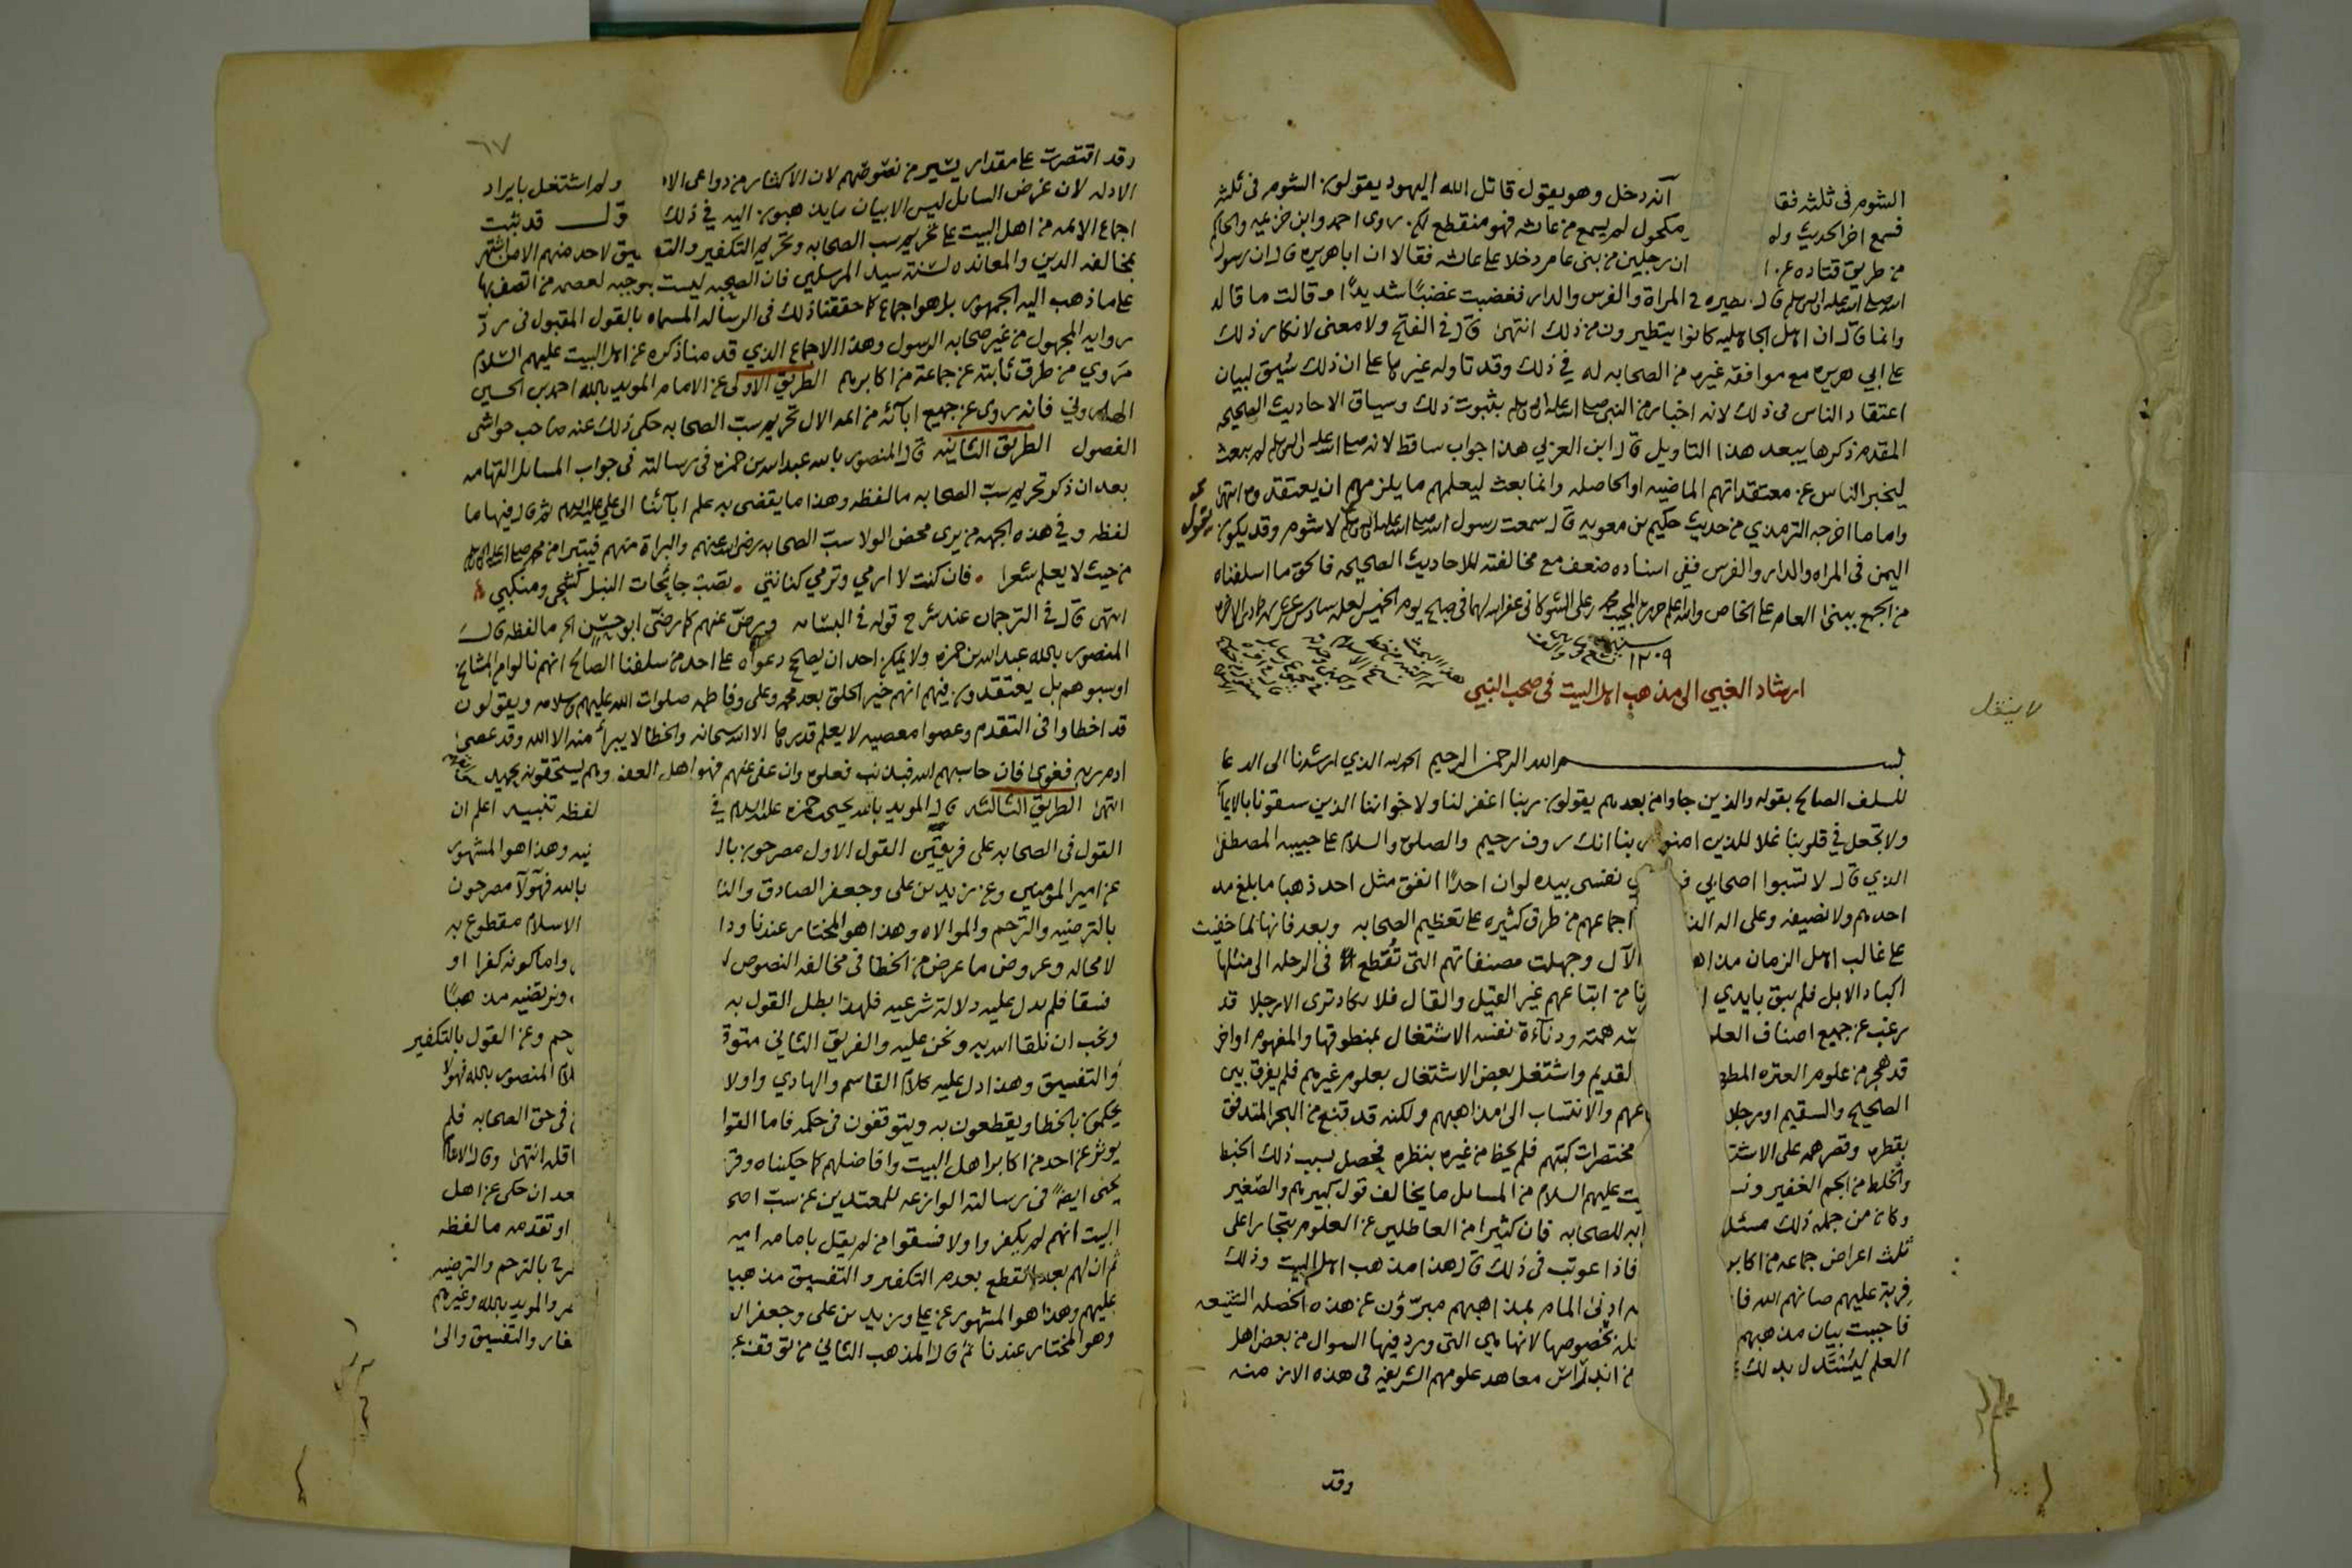 الشوم فى ثلثه فقا آنه دخل وهو يقول قاتل الله اليهود يقولون الشوم فى ثلثه
فسمع اخر الحديث وله مكحول لم يسمع من عائشه فهو منقطع لكن روى احمد وابن خزيمه والحاكم
من طريق قتاده عن ا ان رجلين من بنى عامر دخلا على عائشه فقالا ان ابا هريره قال ان رسول
الله صلى الله عليه واله وسلم قال الطيره فى المراة والفرس والدار فغضبت غضبًا شديدًا وقالت ما قاله
وانما قال ان اهل الجاهليه كانوا يتطيرون من ذلك انتهى قال فى الفتح ولا معنى لانكار ذلك
على ابي هريره مع موافقة غيره من الصحابه له في ذلك وقد تاوله غيرها على ان ذلك سُيق لبيان
اعتقاد الناس فى ذلك لا انه اخبار من النبى صلى الله عليه واله وسلم بثبوت ذلك وسياق الاحاديث الصحيحه
المقدم ذكرها يبعد هذا التاويل قال ابن العزبي هذا جواب ساقط لانه صلى الله عليه واله وسلم لم يبعث
ليخبر الناس عن معتقداتهم الماضيه او الحاصله وانما بعث ليعلمهم ما يلزمهم ان يعتقدوه انتهى
واما ما اخرجه الترمذي من حديث حكيم بن معويه قال سمعت رسول الله صلى الله عليه واله وسلم لا شوم وقد يكون
يقول
اليمن فى المراه والدار والفرس ففى اسناده ضعف مع مخالفته للاحاديث الصحيحه فالحق ما اسلفناه
من الجمع ببنى العام على الخاص والله اعلم حرره المجيب محمد بن على الشوكانى غفر الله لهما فى صبح يوم الخميس لعله سادس عشر شهر جمادى الاخره
سنه ١٢٠٩
ارشاد الغبي الى مذهب اهل البيت فى صحب النبي
لا ينقل
بسم الله الرحمن الرحيم الحمد لله الذي ارشدنا الى الدعا
للسلف الصالح بقوله والذين جاوا من بعدهم يقولون ربنا اغفر لنا ولاخواننا الذين سبقونا بالايمان
ولا تجعل في قلوبنا غلا للذين امنوا ربنا انك روف رحيم والصلوة والسلام على حبيبه المصطفى
الذي قال لا تسبوا اصحابي فو ي نفسى بيده لوان احدًا انفق مثل احد ذهبا ما بلغ مد
احدهم ولا نصيفه وعلى اله الذ اجماعهم من طرق كثيره على تعظيم الصحابه وبعد فانها لما خفيت
على غالب اهل الزمان مذاه الآل وجهلت مصنفاتهم التى تُقطع فى الرحله الى مثلها
اكباد الابل فلم يبق بايدي ا نا من اتباعهم غير القيل والقال فلا يكاد ترى الا رجلا قد
رغب عن جميع اصناف العلم همته ودنآءة نفسه الاشتغال بمنطوقها والمفهوم او اخر
قد هجر من علوم العتره المطه لقديم واشتغل بعض الاشتغال بعلوم غيرهم فلم يفرق بين
الصحيح والسقيم او رجلا عهم والانتساب الى مذاهبهم ولكنه قد قنع من البحر المتدفق
بقطره وقصر همه على الاشتـ مختصرات كتبهم فلم يحظ من غيره بنظره فحصل بسبب ذلك الخبط
والخلط من الجم الغفير ونسـ يت عليهم السلام من المسائل ما يخالف قول كبيرهم والصغير
وكان من جمله ذلك مسئلـ ابه للصحابه فان كثيرا من العاطلين عن العلوم يتجارا على
ثلث اعراض جماعه من اكابر فاذا عوتب فى ذلك قال هذا مذهب اهل البيت وذلك
فرية عليهم صانهم الله فا ه ادنى المام بمذاهبهم مبرّؤن عن هذه الخصله الشنيعه
فاحببت بيان مذهبهم له بخصوصها لانها هي التى ورد فيها السوال من بعض اهل
العلم ليُسْتَدل بذلك من اندراس معاهد علومهم الشريفه فى هذه الازمنه
وقد
٦٧
وقد اقتصرت على مقدار يسير من نصوصهم لان الاكثار من دواعى الا ولم اشتغل بايراد
الادله لان غرض السائل ليس الا بيان ما يذهبون اليه في ذلك قول قد ثبت
اجماع الائمه من اهل البيت على تحريم سب الصحابه وتحريم التكفير والتفـ ـيق لاحد منهم الا من اشتهر
بمخالفة الدين والمعانده لسنة سيد المرسلين فان الصحبه ليست بموجبه لعصمه من اتصف بها
على ما ذهب اليه الجمهور بل هو اجماع كما حققنا ذلك فى الرساله المسماه بالقول المقبول فى ردّ
روايه المجهول من غير صحابه الرسول وهذا الاجماع الذي قدمنا ذكره عن اهل البيت عليهم السّلام
مَروي من طرق ثابته عن جماعة من اكابرهم الطريق الاولى عن الامام المويد بالله احمد بن الحسين
الهاروني فانه روى عن جميع ابآئه من ائمه الال تحريم سب الصحابه حكى ذلك عنه صاحب حواشى
الفصول الطريق الثانيه قال المنصور بالله عبد الله بن حمزه فى رسالته فى جواب المسائل التهاميه
بعد ان ذكر تحريم سبّ الصحابه ما لفظه وهذا ما يقضى به علم ابآئنا الى علي عليه السلام ثم قال فيها ما
لفظه وفي هذه الجهه من يرى محض الولا سبّ الصحابه رضى الله عنهم والبراة منهم فيتبرا من محمد صلى الله عليه واله وسلم
من حيث لا يعلم شعرا فان كنت لا ارمي وترمي كنانتي تصب جانحات النبل كشحي ومنكبي
انتهى قال فى الترجمان عند شرح قوله فى البسامه ويرضّ عنهم كما رضّى ابو حسنٍ الخ ما لفظه قال
المنصور بالله عبد الله بن حمزه ولا يمكن احد ان يصحح دعواه على احد من سلفنا الصّالح انهم نالوا من المشائخ
او سبوهم بل يعتقدون فيهم انهم خير الخلق بعد محمد وعلى وفاطمه صلوات الله عليهم وسلامه ويقولون
قد اخطاوا فى التقدم وعصوا معصيه لا يعلم قدرها الا الله سبحانه والخطا لا يبرأ منه الا الله وقد عصى
ادم ربه فغوى فان حاسبهم الله فبذنب فعلوه وان عفى عنهم فهو اهل العفو وهم يستحقونه بحميد
انتهى الطريق الثالثه قال المويد بالله يحيى بن حمزه عليه السلام في لفظه تنبيه اعلم ان
القول فى الصحابه على فريقين القول الاول مصرحون بالـ نيه وهذا هو المشهور
عن امير المومنين وعن زيد بن على وجعفر الصادق والنا بالله فهولآ مصرحون
بالترضيه والترحم والموالاه وهذا هو المختار عندنا ودا الاسلام مقطوع به
لا محاله وعروض ما عرض من الخطا فى مخالفه النصوص لـ واما كونه كفرا او
فسقا فلم يدل عليه دلالة شرعيه فلهذا بطل القول به ونرتضيه مذهبًا
ونحب ان نلقا الله به ونحن عليه والفريق الثاني متوقـ حم وعن القول بالتكفير
والتفسيق وهذا دل عليه كلام القاسم والهادي واولا لام المنصور بالله فهولا
يحكمون بالخطا ويقطعون به ويتوقفون فى حكمه فاما القو فى حق الصحابه فلم
يوثر عن احد من اكابر اهل البيت وافاضلهم كما حكيناه وقر اقله انتهى وقال الامام
يحيى ايضًا فى رسالته الوازعه للمعتدين عن سب اصحا عد ان حكى عن اهل
البيت انهم لم يكفروا ولا فسقوا من لم يقل بامامه امير او تقدمه ما لفظه
ثم ان لهم بعد القطع بعدم التكفير والتفسيق مذهبا رح بالترحم والترضيه
عليهم وهذا هو المشهور عن علي وزيد بن على وجعفر الـ صر والمويد بالله وغيرهم
وهو المختار عندنا ثم قال المذهب الثاني من توقف عن فار والتفسيق والى